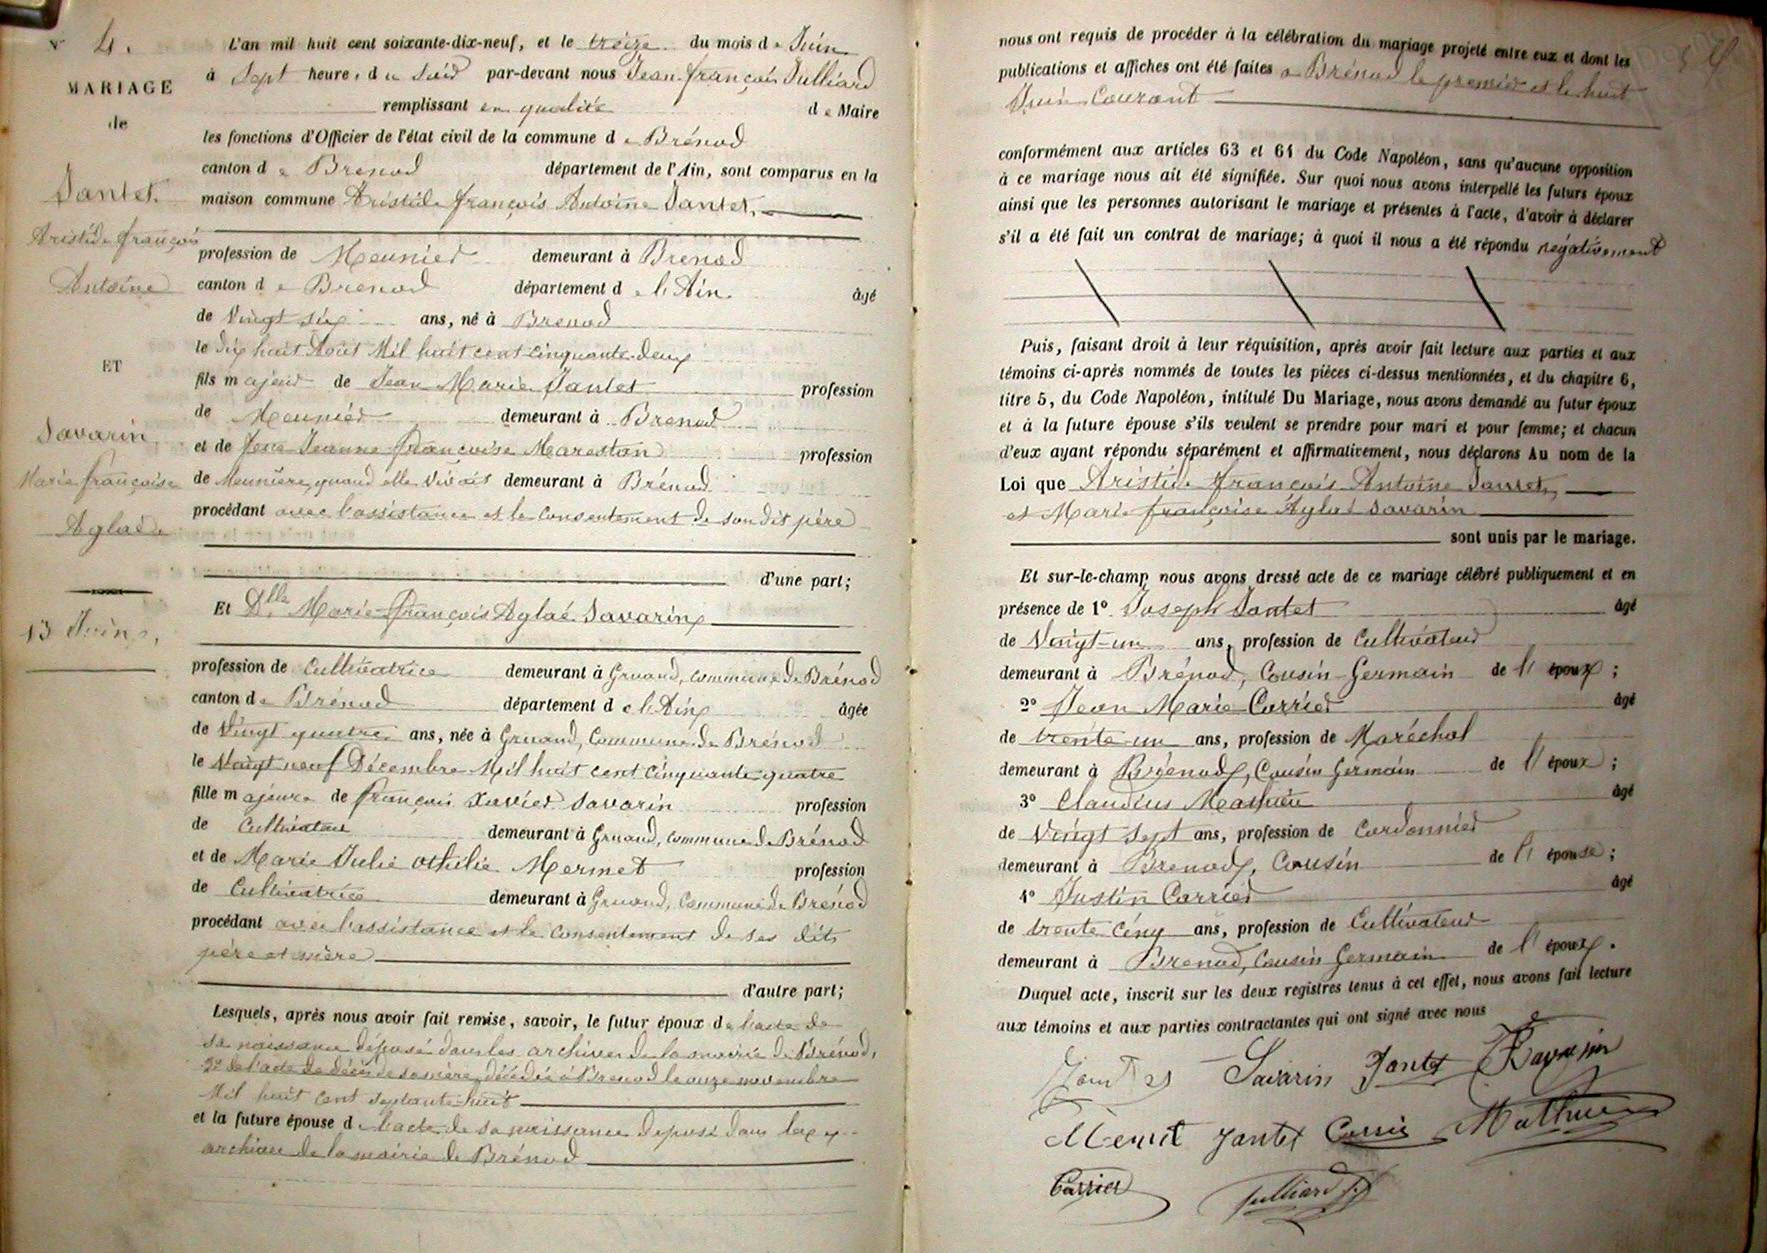 N° 4.
MARIAGE
de
Jantet
Aristide françois
Antoine
ET
Savarin
Marie françoise
Aglaé
13 Juin
L'an mil huit cent soixante-dix-neuf, et le treize du mois de Juin
à Sept heures du soir par-devant nous Jean françois Julliard
remplissant en qualité de Maire
les fonctions d'Officier de l'état civil de la commune de Brénod
canton de Brenod département de l'Ain, sont comparus en la
maison commune Aristide françois Antoine Jantet,
profession de Meunier demeurant à Brenod
canton de Brenod département de l'Ain. âgé
de Vingt six ans, né à Brenod
le dix huit Août Mil huit cent cinquante-deux
fils majeur de Jean Marie Jantet profession
de Meunier demeurant à Brenod
et de feue Jeanne françoise Marestan profession
de Meunière, quand elle vivait demeurant à Brénod
procédant avec l'assistance et le consentement de son dit père
d'une part;
Et Dlle Marie françois Aglaé Savarin
profession de Cultivatrice demeurant à Gruand, commune de Brénod
canton de Brénod département de l'Ain âgée
de Vingt quatre ans, née à Gruand, Commune de Brénod
le Vingt neuf Décembre Mil huit cent cinquante quatre
fille majeure de françois Xavier Savarin profession
de Cultivateur demeurant à Gruand, commune de Brénod
et de Marie Julie Othilie Mermet profession
de Cultivatrice demeurant à Gruand, Commune de Brénod
procédant avec l'assistance et le consentement de ses dits
père et mère
d'autre part;
Lesquels, après nous avoir fait remise, savoir, le futur époux de l'acte de
sa naissance déposé dans les archives de la mairie de Brénod,
2° de l'acte de décès de sa mère, décédée à Brenod le onze novembre
Mil huit cent septante-huit
et la future épouse de l'acte de sa naissance déposé dans les
archives de la mairie de Brénod
nous ont requis de procéder à la célébration du mariage projeté entre eux et dont les
publications et affiches ont été faites à Brénod le premier et le huit
Juin Courant
conformément aux articles 63 et 64 du Code Napoléon, sans qu'aucune opposition
à ce mariage nous ait été signifiée. Sur quoi nous avons interpellé les futurs époux
ainsi que les personnes autorisant le mariage et présentes à l'acte, d'avoir à déclarer
s'il a été fait un contrat de mariage; à quoi il nous a été répondu négativement
Puis, faisant droit à leur réquisition, après avoir fait lecture aux parties et aux
témoins ci-après nommés de toutes les pièces ci-dessus mentionnées, et du chapitre 6,
titre 5, du Code Napoléon, intitulé Du Mariage, nous avons demandé au futur époux
et à la future épouse s'ils veulent se prendre pour mari et pour femme; et chacun
d'eux ayant répondu séparément et affirmativement, nous déclarons Au nom de la
Loi que Aristide françois Antoine Jantet,
et Marie françoise Aglaé Savarin
sont unis par le mariage.
Et sur-le-champ nous avons dressé acte de ce mariage célébré publiquement et en
présence de 1° Joseph Jantet âgé
de Vingt-un ans, profession de Cultivateur
demeurant à Brénod, Cousin Germain de l'époux;
2° Jean Marie Carrier âgé
de trente-un ans, profession de Maréchal
demeurant à Brénod, Cousin Germain de l'époux;
3° Claudius Mathieu âgé
de Vingt sept ans, profession de Cordonnier
demeurant à Brenod, Cousin de l'épouse;
4° Justin Carrier âgé
de trente cinq ans, profession de Cultivateur
demeurant à Brenod, Cousin Germain de l'époux.
Duquel acte, inscrit sur les deux registres tenus à cet effet, nous avons fait lecture
aux témoins et aux parties contractantes qui ont signé avec nous
Savarin Jantet Savarin
Mermet Jantet Carrier Mathieu
Carrier Julliard